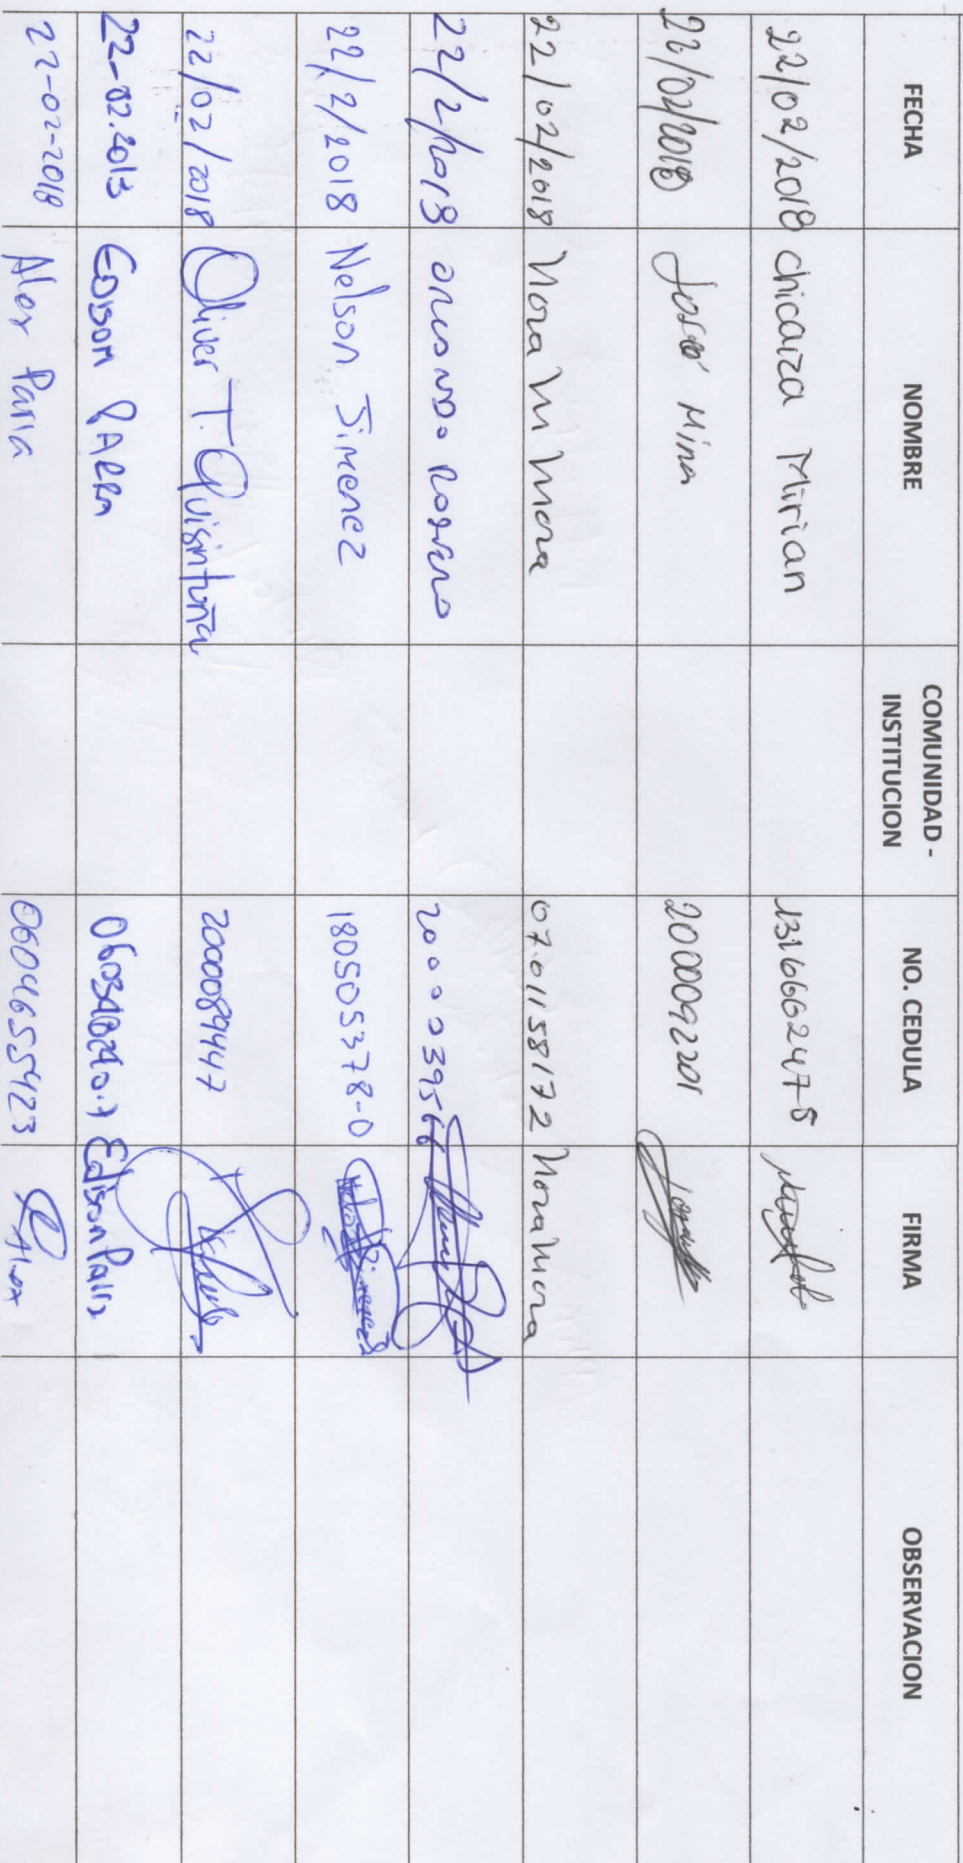 FECHA NOMBRE COMUNIDAD - INSTITUCION NO. CEDULA FIRMA OBSERVACION
22/02/2018 Chicaiza Mirian 131666247-8
22/02/2018 José Mina 2000092201
22/02/2018 Nora M Mora 0701158172 Nora Mora
22/2/2018 Rosero 2000039566
22/2/2018 Nelson Jimenez 180505378-0
22/02/2018 Oliver T. Quisintuña 2000089447
22-02.2013 EDISON PARRA Edison Parra
22-02-2018 Alex Parra 0604655423 Alex